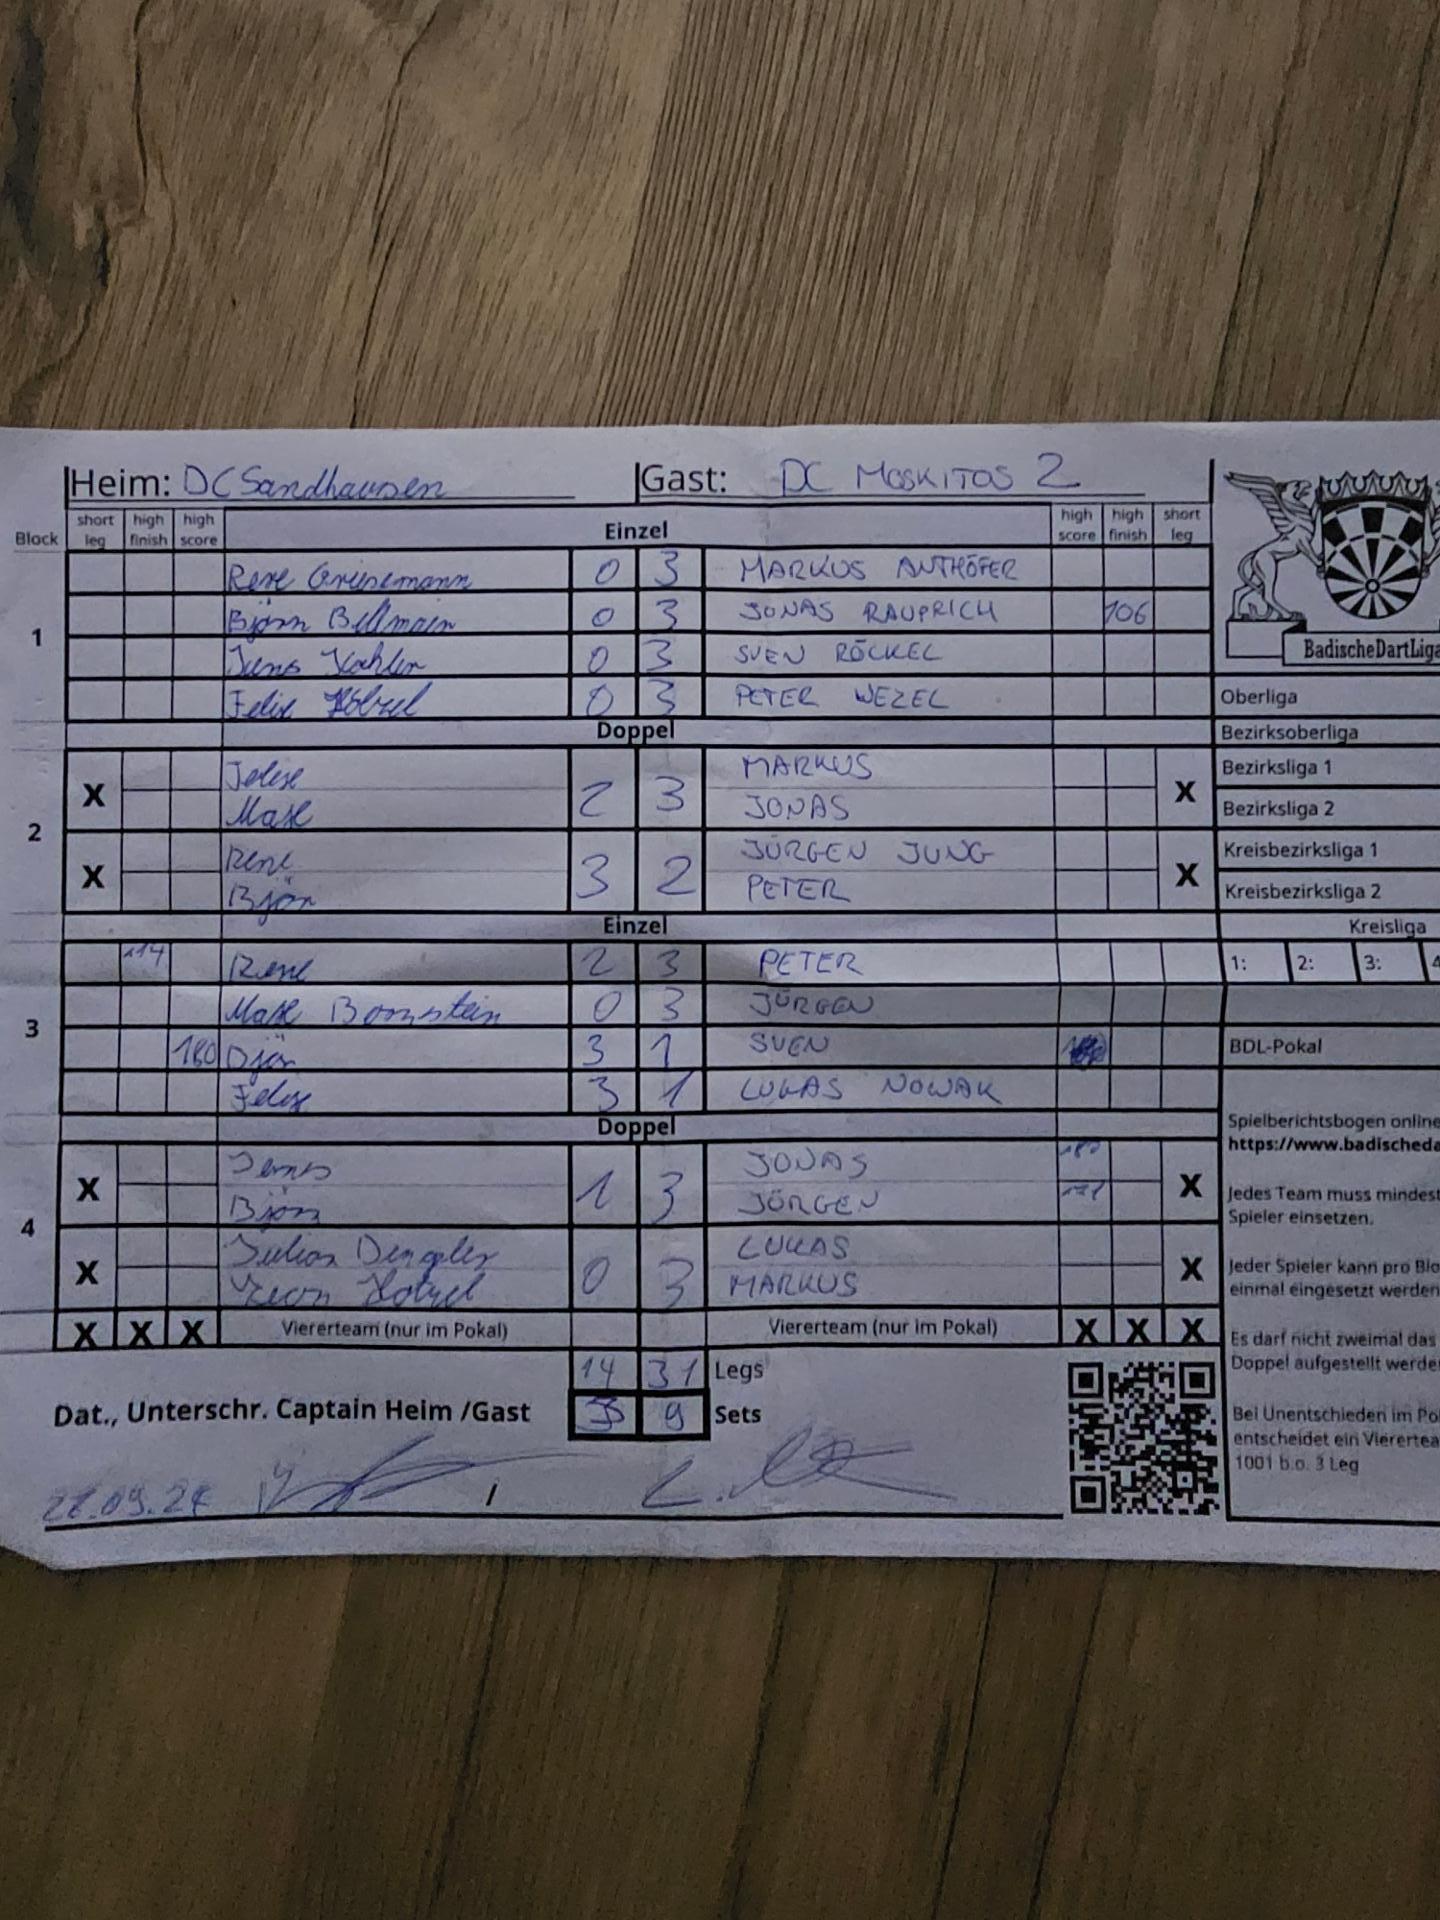 Heim: DC Sandhausen Gast: DC MOSKITOS 2
Block short leg high finish high score Einzel high score high finish short leg
1
Rene Griesemann 0 3 MARKUS ANTHÖFER
Björn Bellmain 0 3 JONAS RAUPRICH 106
Jens Kahler 0 3 SVEN RÖCKEL
Felix Hölzel 0 3 PETER WEZEL
Doppel
2
X Felix 2 3 MARKUS X
Maik JONAS
X Rene 3 2 JÜRGEN JUNG X
Björn PETER
Einzel
3
114 Rene 2 3 PETER
Maik Bornstein 0 3 JÜRGEN
180 Björn 3 1 SVEN
Felix 3 1 LUKAS NOWAK
Doppel
4
X Jens 1 3 JONAS 180 X
Björn JÜRGEN
X Julian Dengler 0 3 LUKAS X
Leon Hölzel MARKUS
X X X Viererteam (nur im Pokal) Viererteam (nur im Pokal) X X X
14 31 Legs
Dat., Unterschr. Captain Heim /Gast 3 9 Sets
/
BadischeDartLiga
Oberliga
Bezirksoberliga
Bezirksliga 1
Bezirksliga 2
Kreisbezirksliga 1
Kreisbezirksliga 2
Kreisliga
1: 2: 3: 4
BDL-Pokal
Spielberichtsbogen online
https://www.badischeda
Jedes Team muss mindest
Spieler einsetzen.
Jeder Spieler kann pro Blo
einmal eingesetzt werden
Es darf nicht zweimal das
Doppel aufgestellt werde
Bei Unentschieden im Po
entscheidet ein Viererte
1001 b.o. 3 Leg